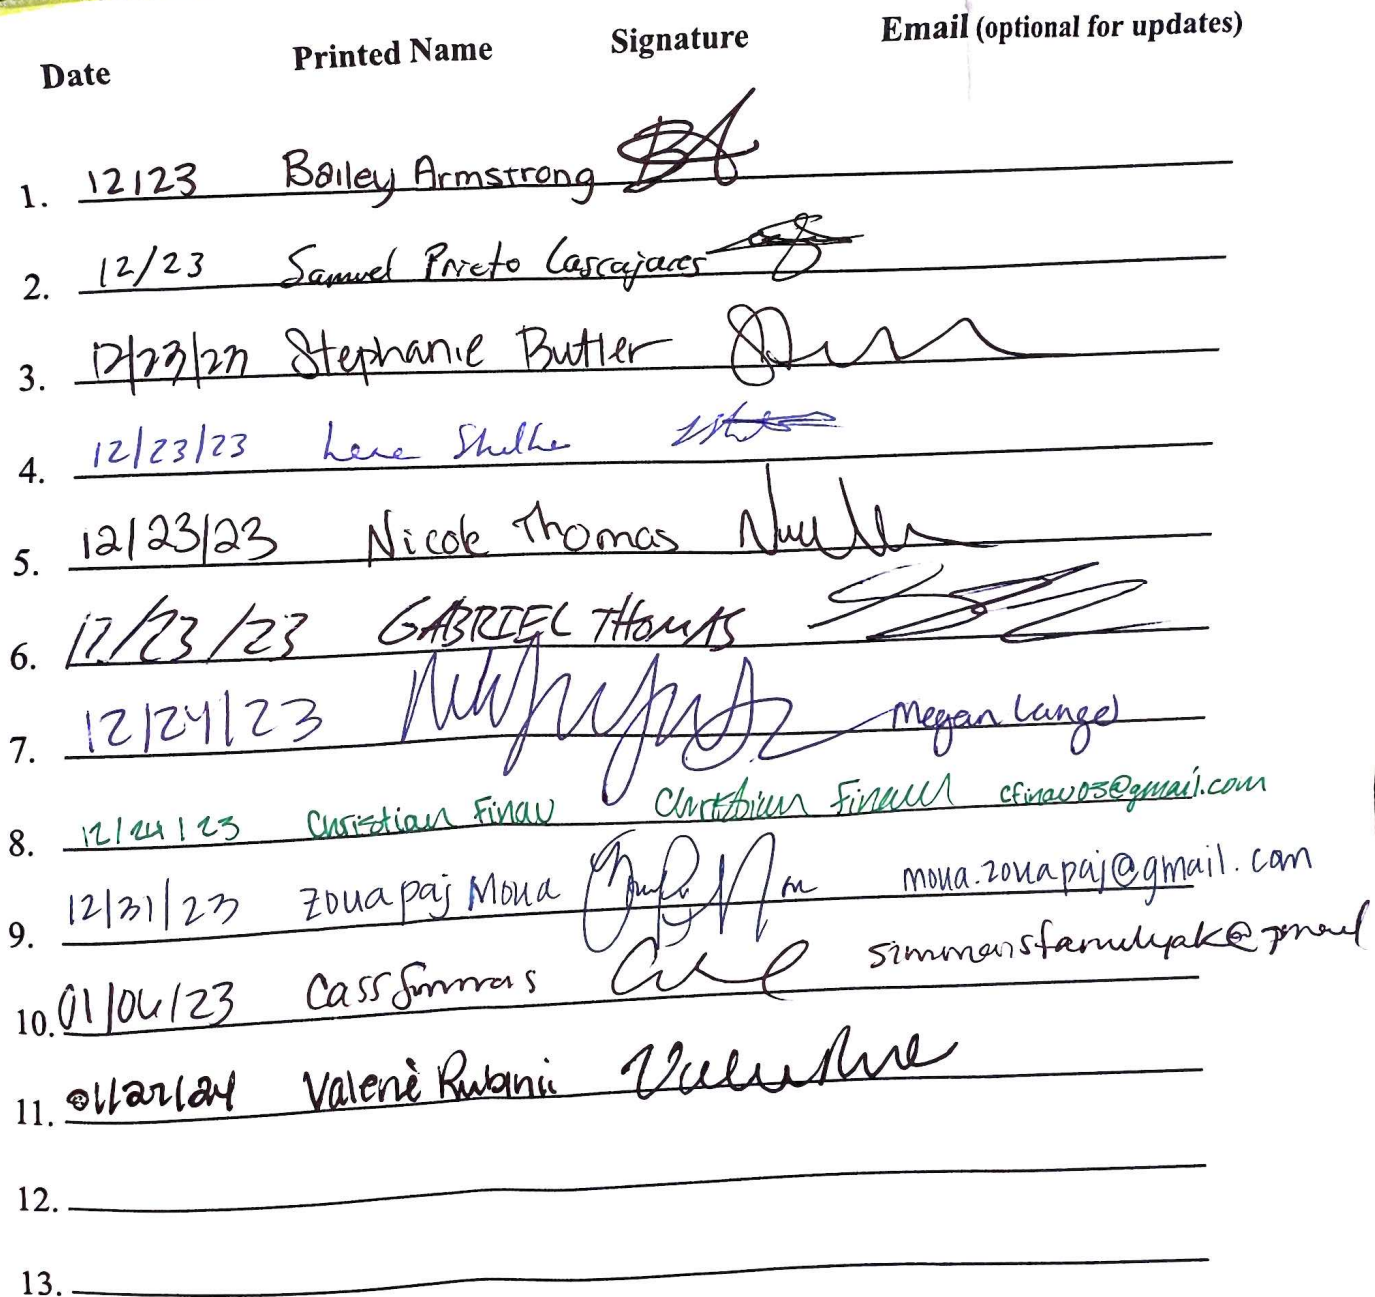 Date Printed Name Signature Email (optional for updates)
1. 12/23 Bailey Armstrong
2. 12/23 Samuel Prieto Cascajares
3. 12/23/23 Stephanie Butler
4. 12/23/23
5. 12/23/23 Nicole Thomas
6. 12/23/23 GABRIEL THOMAS
7. 12/24/23 Megan Langel
8. 12/24/23 Christian Finau Christian Finau cfinau03@gmail.com
9. 12/31/23 Zouapaj Moua moua.zouapaj@gmail.com
10. 01/06/23 Cass Simmons simmonsfamilyak@gmail
11. 01/22/24 Valerie
12.
13.